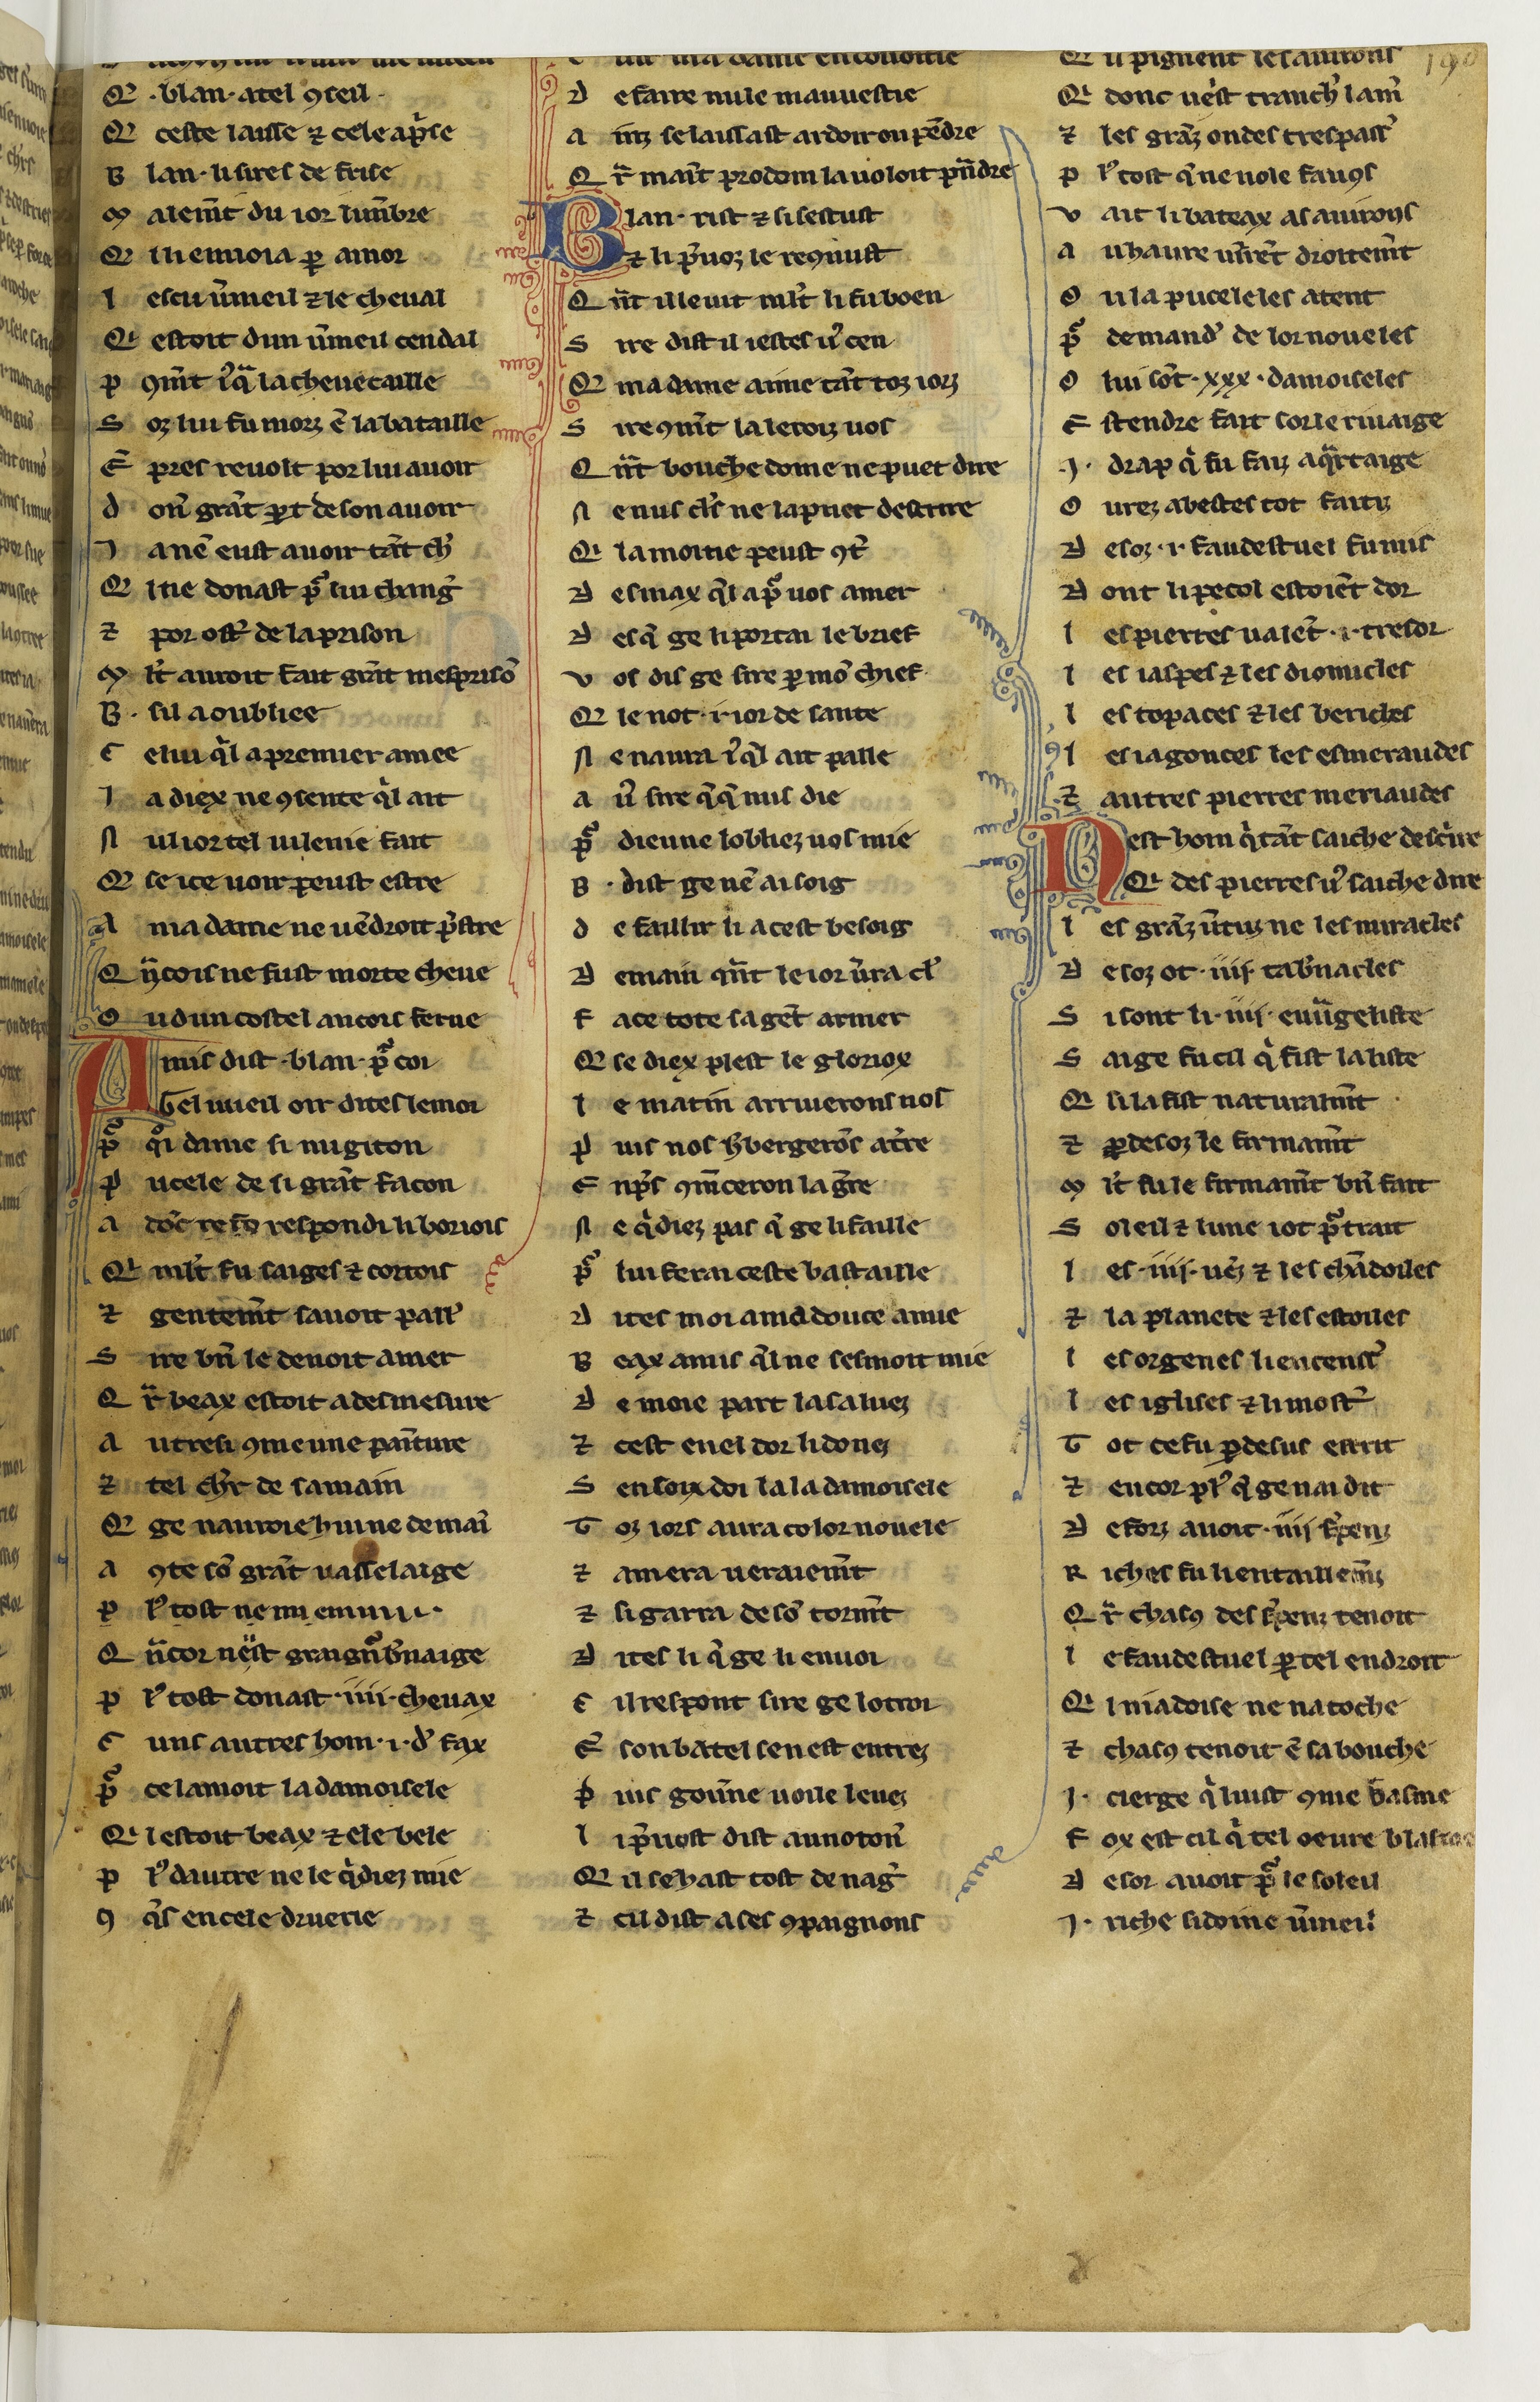 Q .blan. atel ꝯseil.
Q ceste laisse ⁊ cele ap̃se
B lan. li sires de frise
M alemt̃ du ior lunbre
Q li enuoia ꝑ amor
l escu ũmeil ⁊ le cheual
Q estoit dun ũmeil cendal
p ꝯm̃t iq̃ la cheuecaille
S oz lui fu morz ẽ la bataille
E pres reuolt por lui auoir
d on̄ grãt ꝑt de son auoir
J a nẽ eust auoir tãt ch'
Q l ne donast p̃ lui chang'
⁊ por ost' de la prison
M lt̃ auroit fait grãt mesprisõ
B . sil a oubliee
C elui q̃l a premier amee
J a diex ne ꝯsente q̃l ait
N ul ior tel uilenie fait
Q se ice uoir peust estre
A ma dame ne uẽdroit p̃stre
Q ñcois ne fust morte cheue
O u dun costel ancois ferue
A mis dist .blan. p̃ coi
Gel uueil oir dites le moi
p̃ q̃i dame si mugiton
P ucele de si grãt facon
A dõc respondi li boriois
Q mlt̃ fu saiges ⁊ cortois
⁊ gentemt̃ sauoit parl'
S ire bñ le deuoit amer
Q r̃ beax estoit a desmesure
A utresi ꝯme une pañture
⁊ tel ch'r de sa main
Q ge nauroie hui ne demaĩ
A ꝯte sõ grãt uasselaige
P l' tost
Q ñcor nest graign' b'naige
P l' tost donast .iiii. cheuax
C uns autres hom .i. d' fax
p̃ ce lamoit la damoisele
Q l estoit beax ⁊ ele bele
P l' dautre ne le q̃diez mie
ꝯ q̃s en cele druerie
ma dame encouoitie
D e faire nule mauuestie
A inz se laissast ardoir ou pẽdre
Q r̃ maĩt prodom la uoloit pñdre
B lan. rist ⁊ si sestust
⁊ li p̃uoz le reꝯnust
Q ñt il le uit mlt̃ li fu boen
S ire dist il iestes u' cen
Q ma dame aime tãt toz iorz
S ire ꝯm̃t la leroiz uos
Q ñt bouche dome ne puet dire
N e nus cl's ne la puet descrire
Q la moitie peust ꝯt'
D es max q̃l a p̃ uos amer
D es q̃ ge li portai le brief
V os dis ge sire ꝑ mõ chief
Q le not .i. ior de sante
N e naura iq̃l ait palle
A u' sire q̃q̃ nus die
p̃ dieu ne lobliez uos mie
B . dist ge nẽ ai soig
d e faillir li a cest besoig
D emain qm̃t le ior ũra cl'
F ace tote sa get̃ armer
Q se diex plest le gloriox
l e matin arriuerons nos
P uis nos h'bergerõs at're
E np̃s ꝯm̃ceron la g̃re
N e q̃diez pas q̃ ge li faille
p̃ lui ferai ceste bastaille
D ites moi ama douce amie
B eax amis q̃l ne sesmoit mie
D e moie part la saluez
⁊ cest enel dor li donez
S en soix doi la la damoisele
T oz iors aura color nouele
⁊ amera ueraiemt̃
⁊ si garra de sõ tormt̃
D ites li q̃ ge li enuoi
C il respont sire ge lotroi
E son batel sen est entrez
P uis gou'ne uoile leuez
l i p̃uost dist au noton̄
Q il se hast tost de nag'
⁊ cil dist a ses ꝯpaignons
Q il pignent les auirons
Q donc uẽist tranch' lam̃
⁊ les grãz ondes trespass'
p l' tost q̃ ne uole fauꝯs
V ait li bateax as auirons
A u haure uĩrẽt droitemt̃
O u la pucele les atent
p̃ demand' de lor noueles
O lui sõt .xxx. damoiseles
E stendre fait sor le riuaige
.J. drap q̃ fu faiz a q̃rtaige
O urez a bestes tot faitiz
D esoz .i. faudestuel fu mis
D ont li pecol estoiẽt dor
l es pierres ualẽt .i. tresor
l es iaspes ⁊ les dionicles
l es topaces ⁊ les bericles
l es iagonces les esmeraudes
⁊ autres pierres meriaudes
N est hom q̃ tãt saiche descrire
Q des pierres u' saiche dire
l es grãz ũtuz ne les miracles
D esoz ot .iiij. tab'nacles
S i sont li .iiij. euũgeliste
S aige fu cil q̃ fist la liste
Q si la fist naturamt̃
⁊ ꝑ desoz le firmamt̃
M lt̃ fu le firmamt̃ bñ fait
S oleil ⁊ lune iot p̃trait
l es .iiij. uẽz ⁊ les chãdoiles
⁊ la planete ⁊ les estoiles
l es orgenes li encenss'
l es iglises ⁊ li most'
T ot ce fu ꝑ desus escrit
⁊ encor pl' q̃ ge nai dit
D efors auoit .iiij. s'penz
R iches fu li entaillem̃z
Q r̃ chasꝯ des s'penz tenoit
l e faudestuel ꝑ tel endroit
Q l niadoise ne natoche
⁊ chasꝯ tenoit ẽ sa bouche
.J. cierge q̃ luist ꝯme basme
F ox est cil q̃ tel oeure blasme
D esor auoit p̃ le soleil
.J. riche sidoine ũmeil